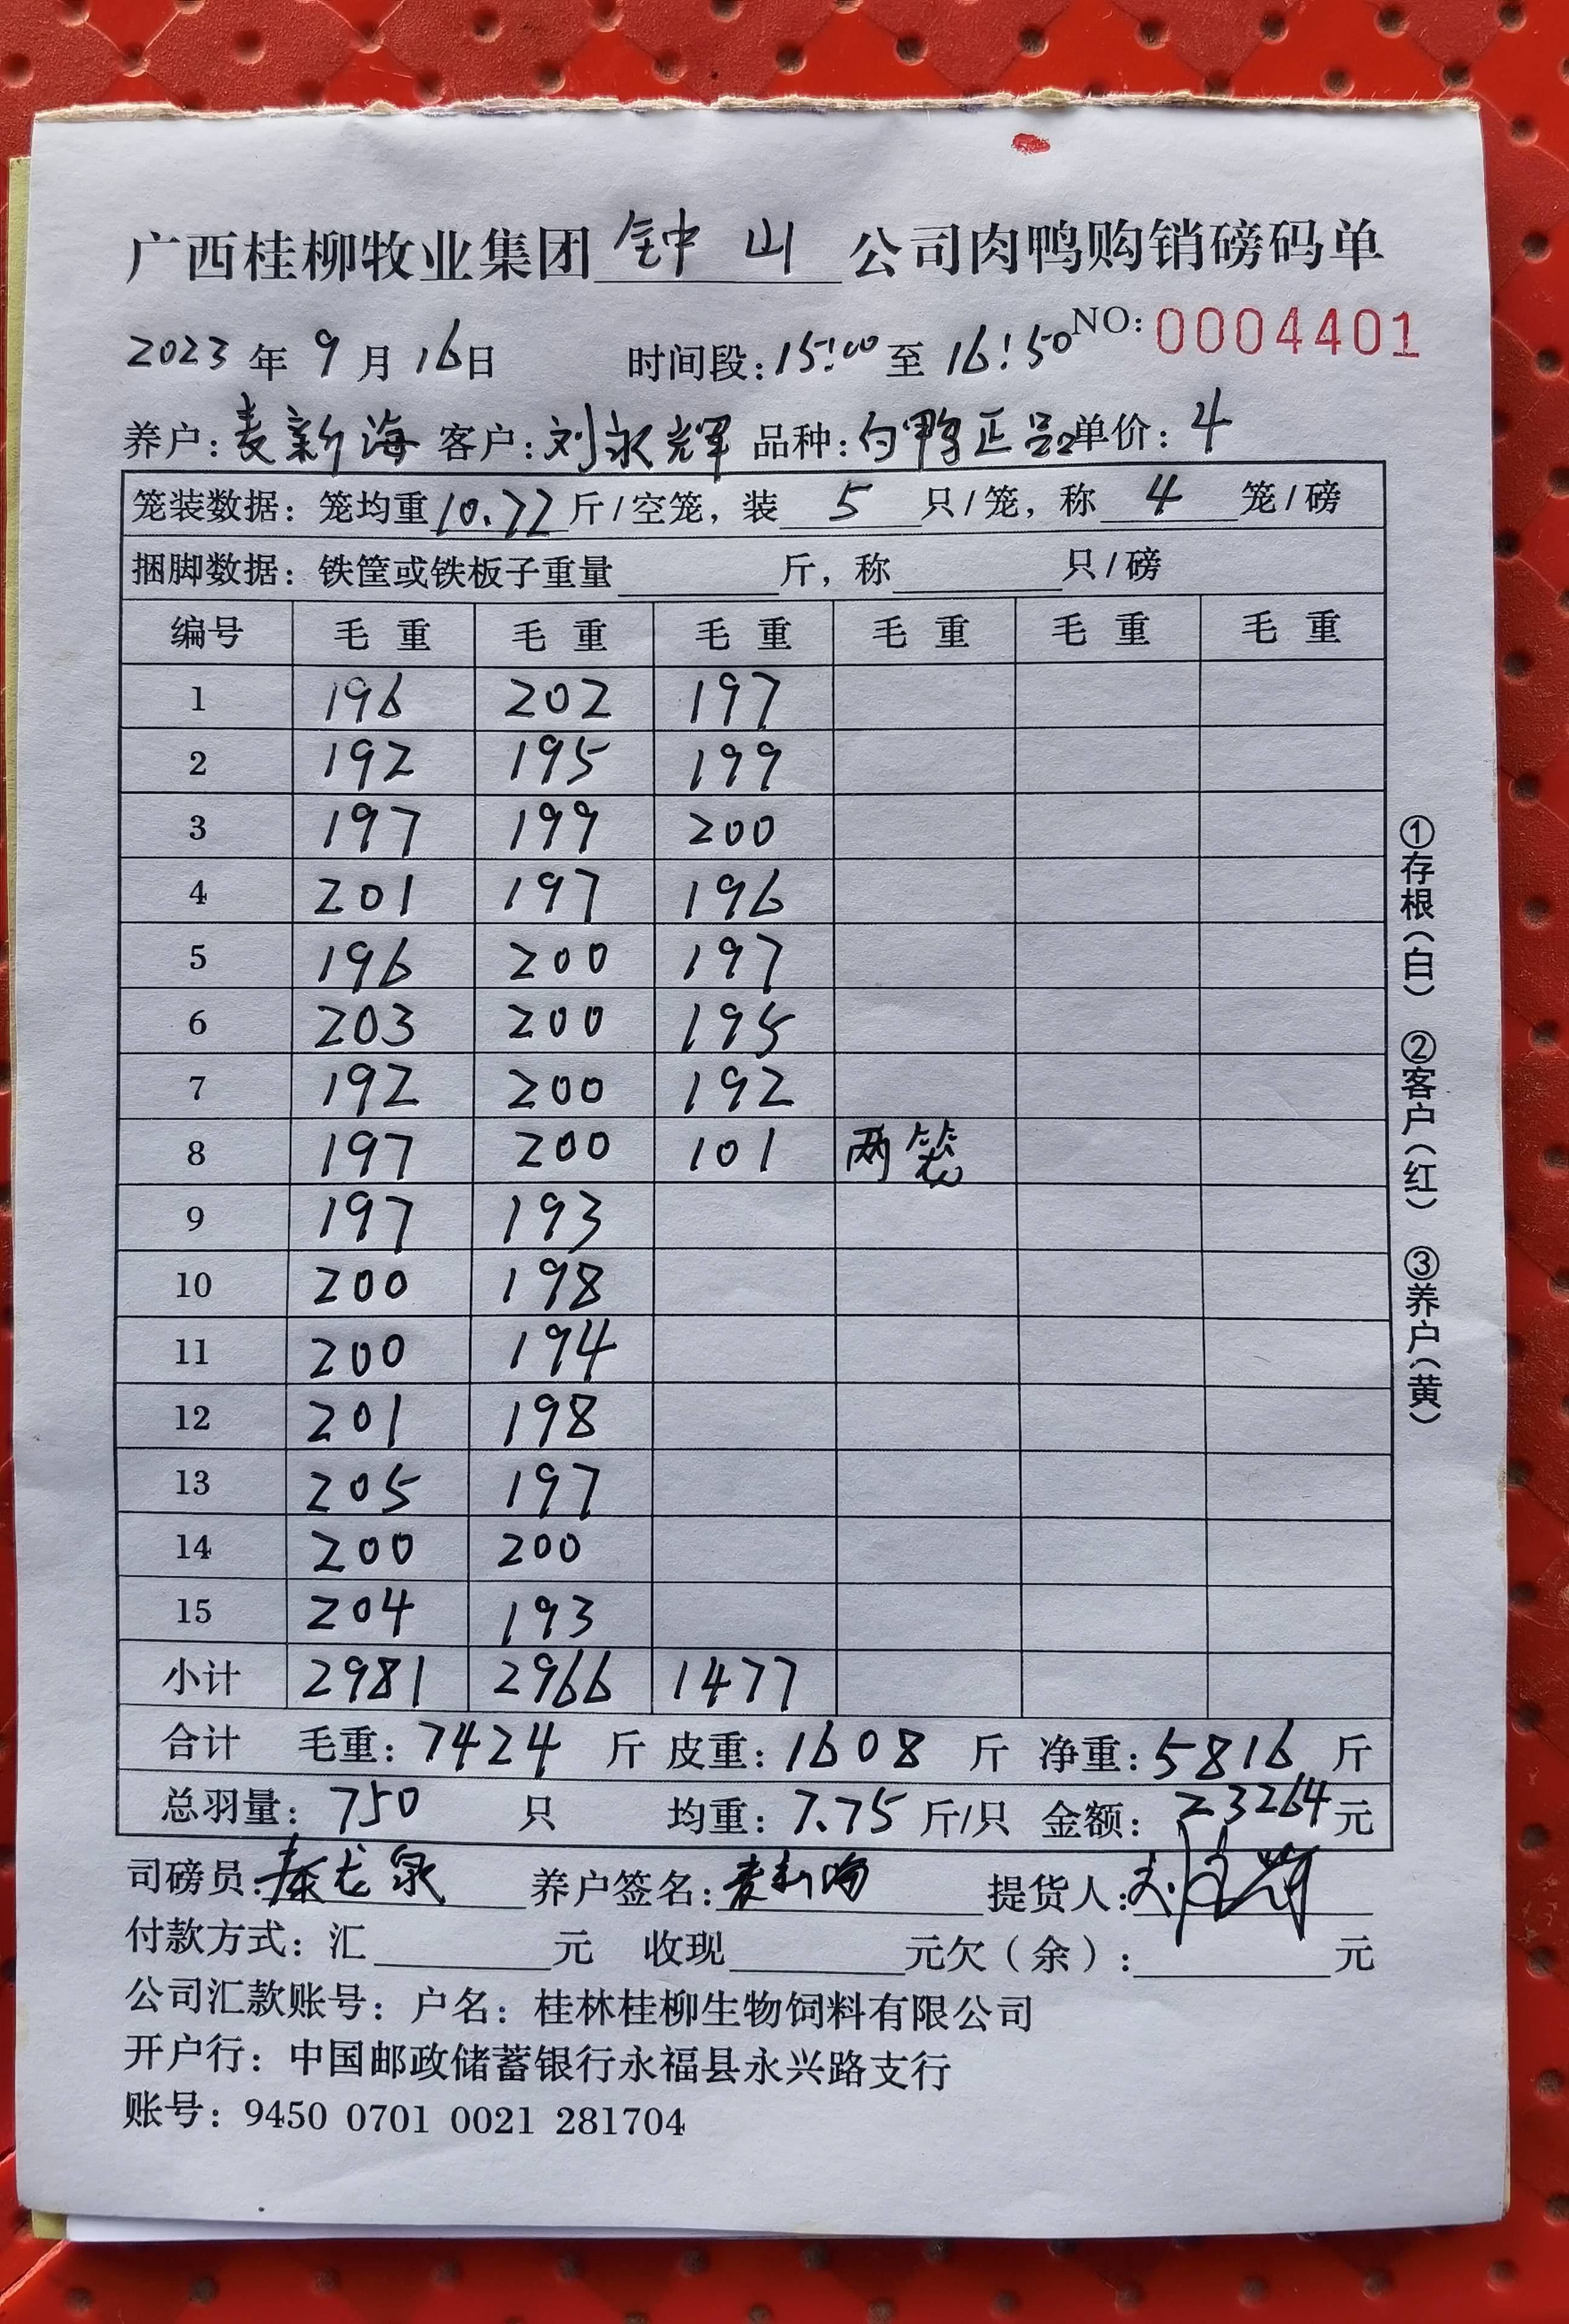 广西桂柳牧业集团 钟山 公司肉鸭购销磅码单
NO: 0004401
2023 年 9 月 16 日 时间段: 15:00 至 16:50
养户: 麦新海 客户: 刘永辉 品种: 白鸭正品 单价: 4
笼装数据: 笼均重 10.72 斤/空笼, 装 5 只/笼, 称 4 笼/磅
捆脚数据: 铁筐或铁板子重量 斤, 称 只/磅
编号 毛重 毛重 毛重 毛重 毛重 毛重
1 196 202 197
2 192 195 199
3 197 199 200
4 201 197 196
5 196 200 197
6 203 200 195
7 192 200 192
8 197 200 101 两笼
9 197 193
10 200 198
11 200 194
12 201 198
13 205 197
14 200 200
15 204 193
小计 2981 2966 1477
合计 毛重: 7424 斤 皮重: 1608 斤 净重: 5816 斤
总羽量: 750 只 均重: 7.75 斤/只 金额: 23264 元
司磅员: 养户签名: 麦新海 提货人:
付款方式: 汇 元 收现 元欠(余): 元
公司汇款账号: 户名: 桂林桂柳生物饲料有限公司
开户行: 中国邮政储蓄银行永福县永兴路支行
账号: 9450 0701 0021 281704
①存根(白) ②客户(红) ③养户(黄)